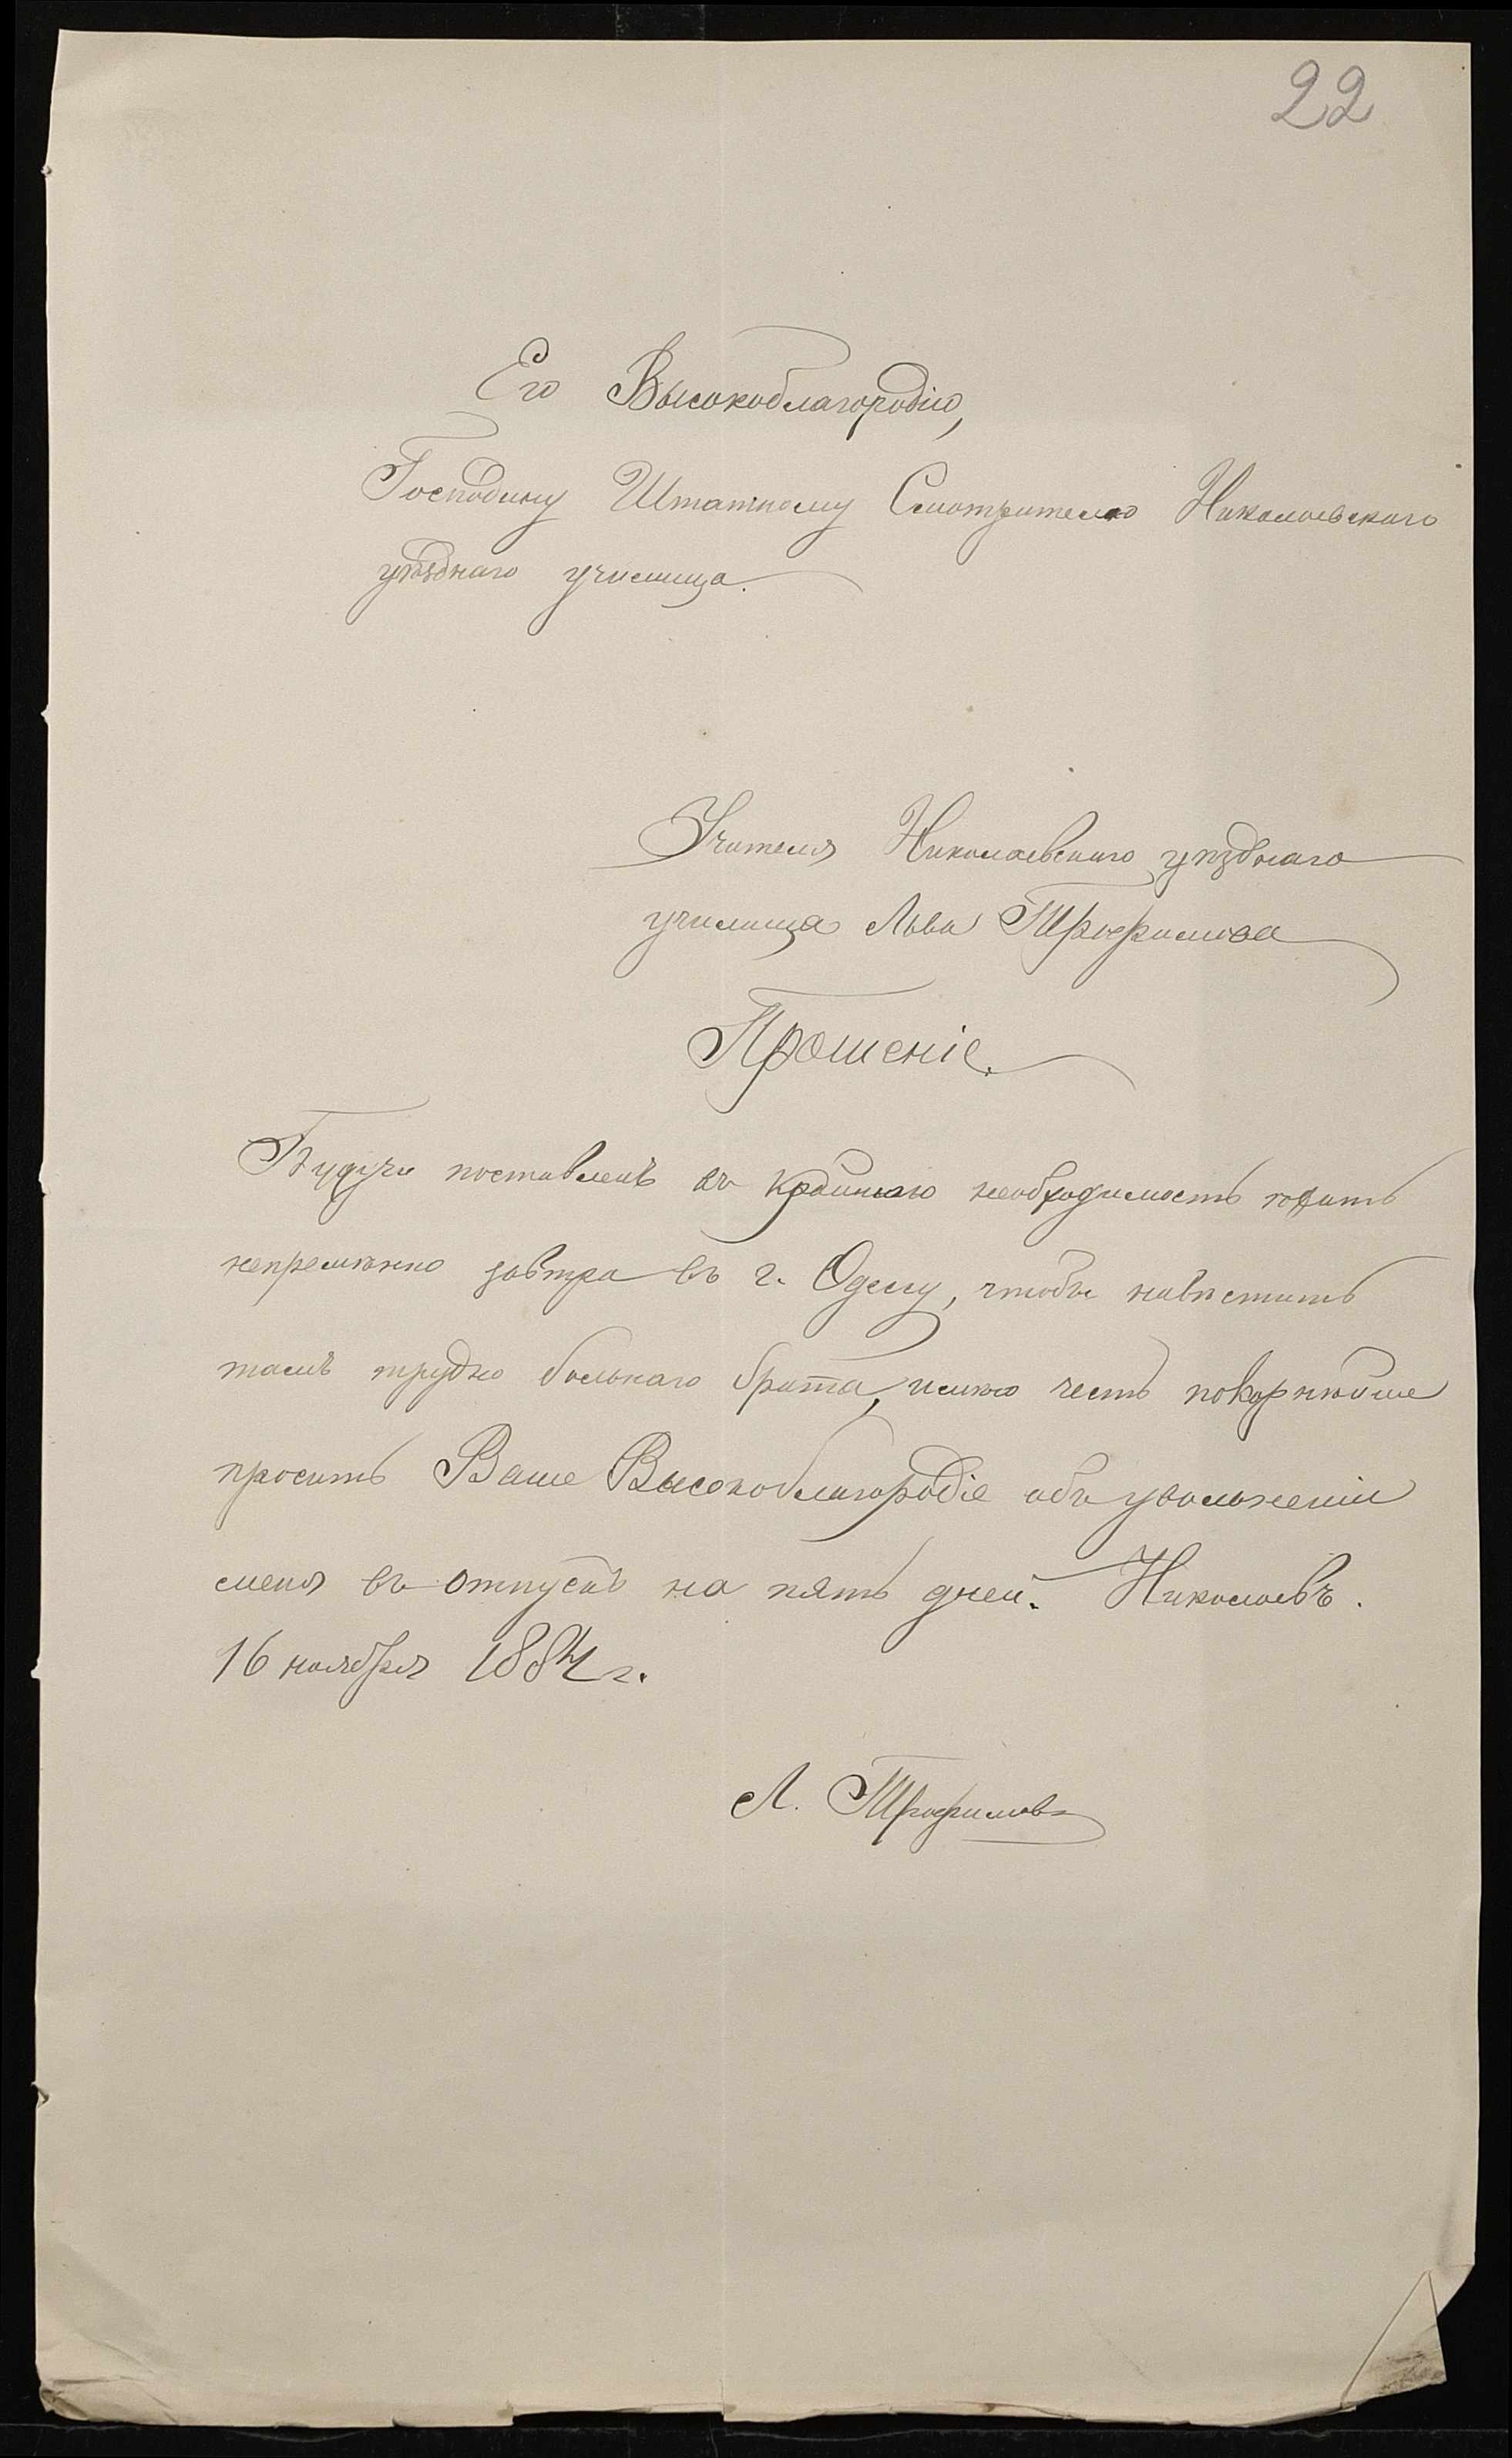 22
Его Высокоблагородію,
Господину Штатному Смотрителю Николаевскаго
уѣзднаго училища.
Учителя Николаевскаго уѣзднаго
училища Льва Трофимова
Прошеніе.
Будучи поставленъ въ крайнюю необходимость
непремѣнно завтра въ г. Одессу, чтобы навѣстить
тамъ трудно больнаго брата, имѣю честь покорнѣйше
просить Ваше Высокоблагородіе объ увольненіи
меня въ отпускъ на пять дней. Николаевъ.
16 ноября 1884 г.
Л. Трофимовъ